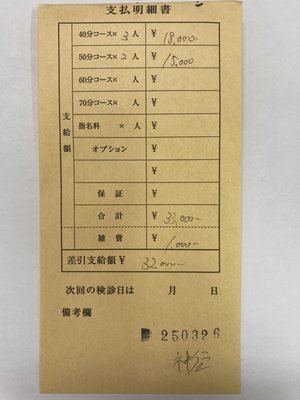 支払明細書
40分コース× 3 人 ¥ 18,000-
50分コース× 2 人 ¥ 15,000
60分コース× 人 ¥
70分コース× 人 ¥
指名料 × 人 ¥
オプション ¥
支給額
保証 ¥
合計 ¥ 33,000-
雑費 ¥ 1,000-
差引支給額¥ 32,000-
次回の検診日は 月 日
備考欄
250326